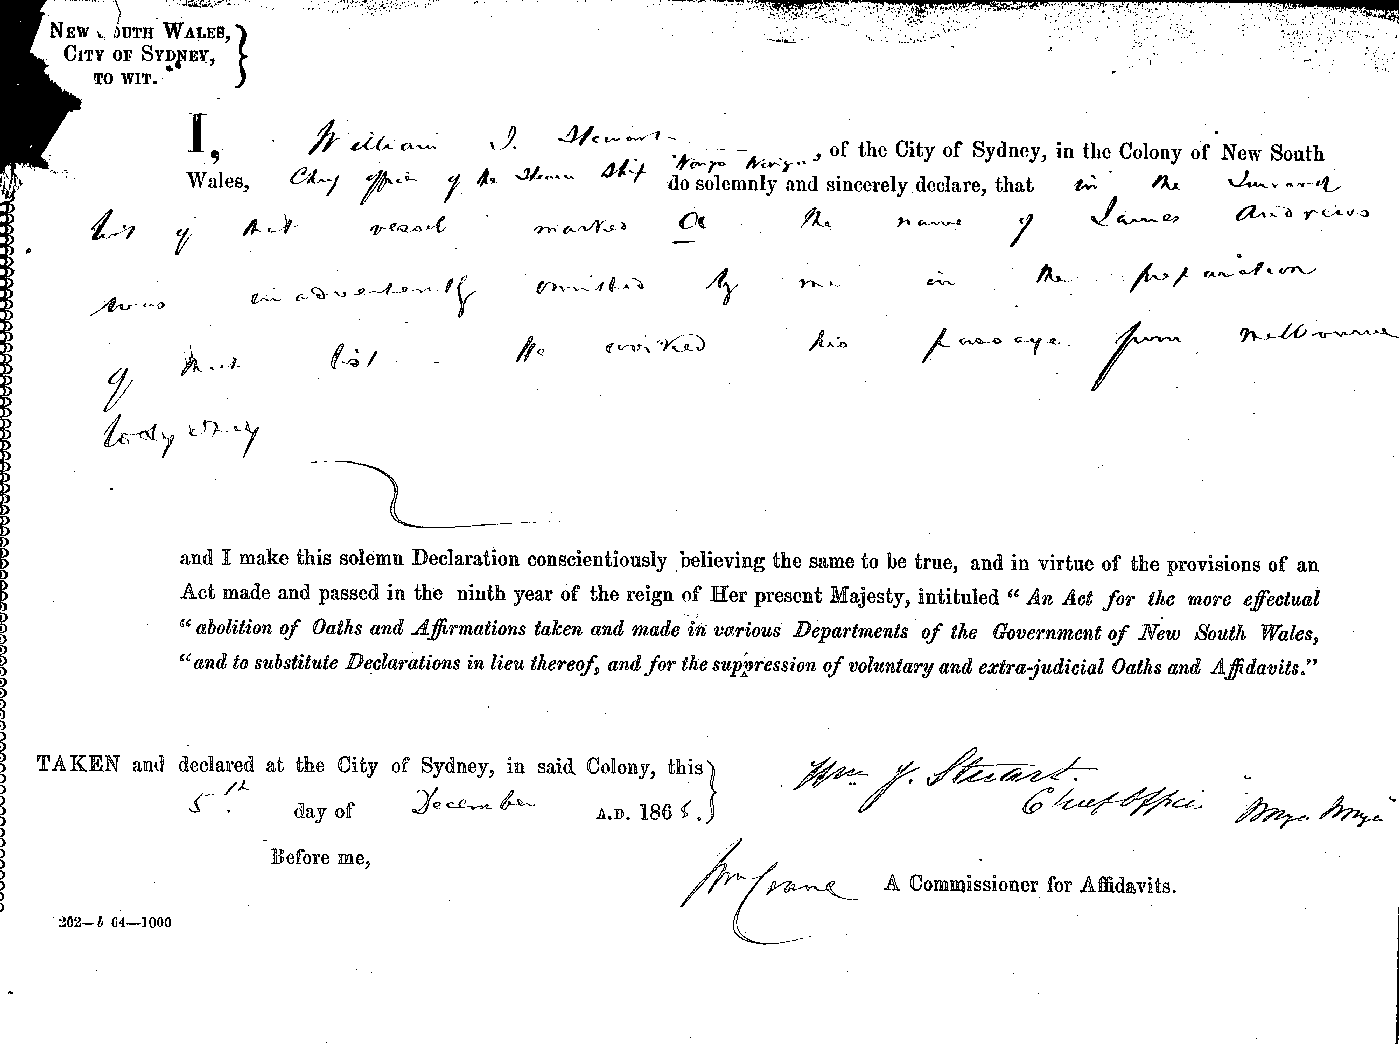 NEW SOUTH WALES,
CITY OF SYDNEY,
TO WIT.
I, William J. Stewart, of the City of Sydney, in the Colony of New South
Wales, Chief officer of the Steam Ship "Wonga Wonga" do solemnly and sincerely declare, that in the Inward
list of that vessel marked A the name of James Andrews
was inadvertently omitted by me in the preparation
of that list - He worked his passage from Melbourne
to Sydney
and I make this solemn Declaration conscientiously believing the same to be true, and in virtue of the provisions of an
Act made and passed in the ninth year of the reign of Her present Majesty, intituled " An Act for the more effectual
" abolition of Oaths and Affirmations taken and made in various Departments of the Government of New South Wales,
"and to substitute Declarations in lieu thereof, and for the suppression of voluntary and extra-judicial Oaths and Affidavits."
TAKEN and declared at the City of Sydney, in said Colony, this
5th. day of December A.D. 1865.
Wm J. Stewart.
Chief Officer "Wonga Wonga"
Before me,
Wm Crane A Commissioner for Affidavits.
202—b 64—1000